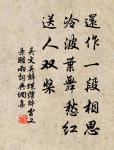 還作一段相思
冷波葉舞愁红
送人双槳
吴文英解蹀躞醉雲又
兼醒雨